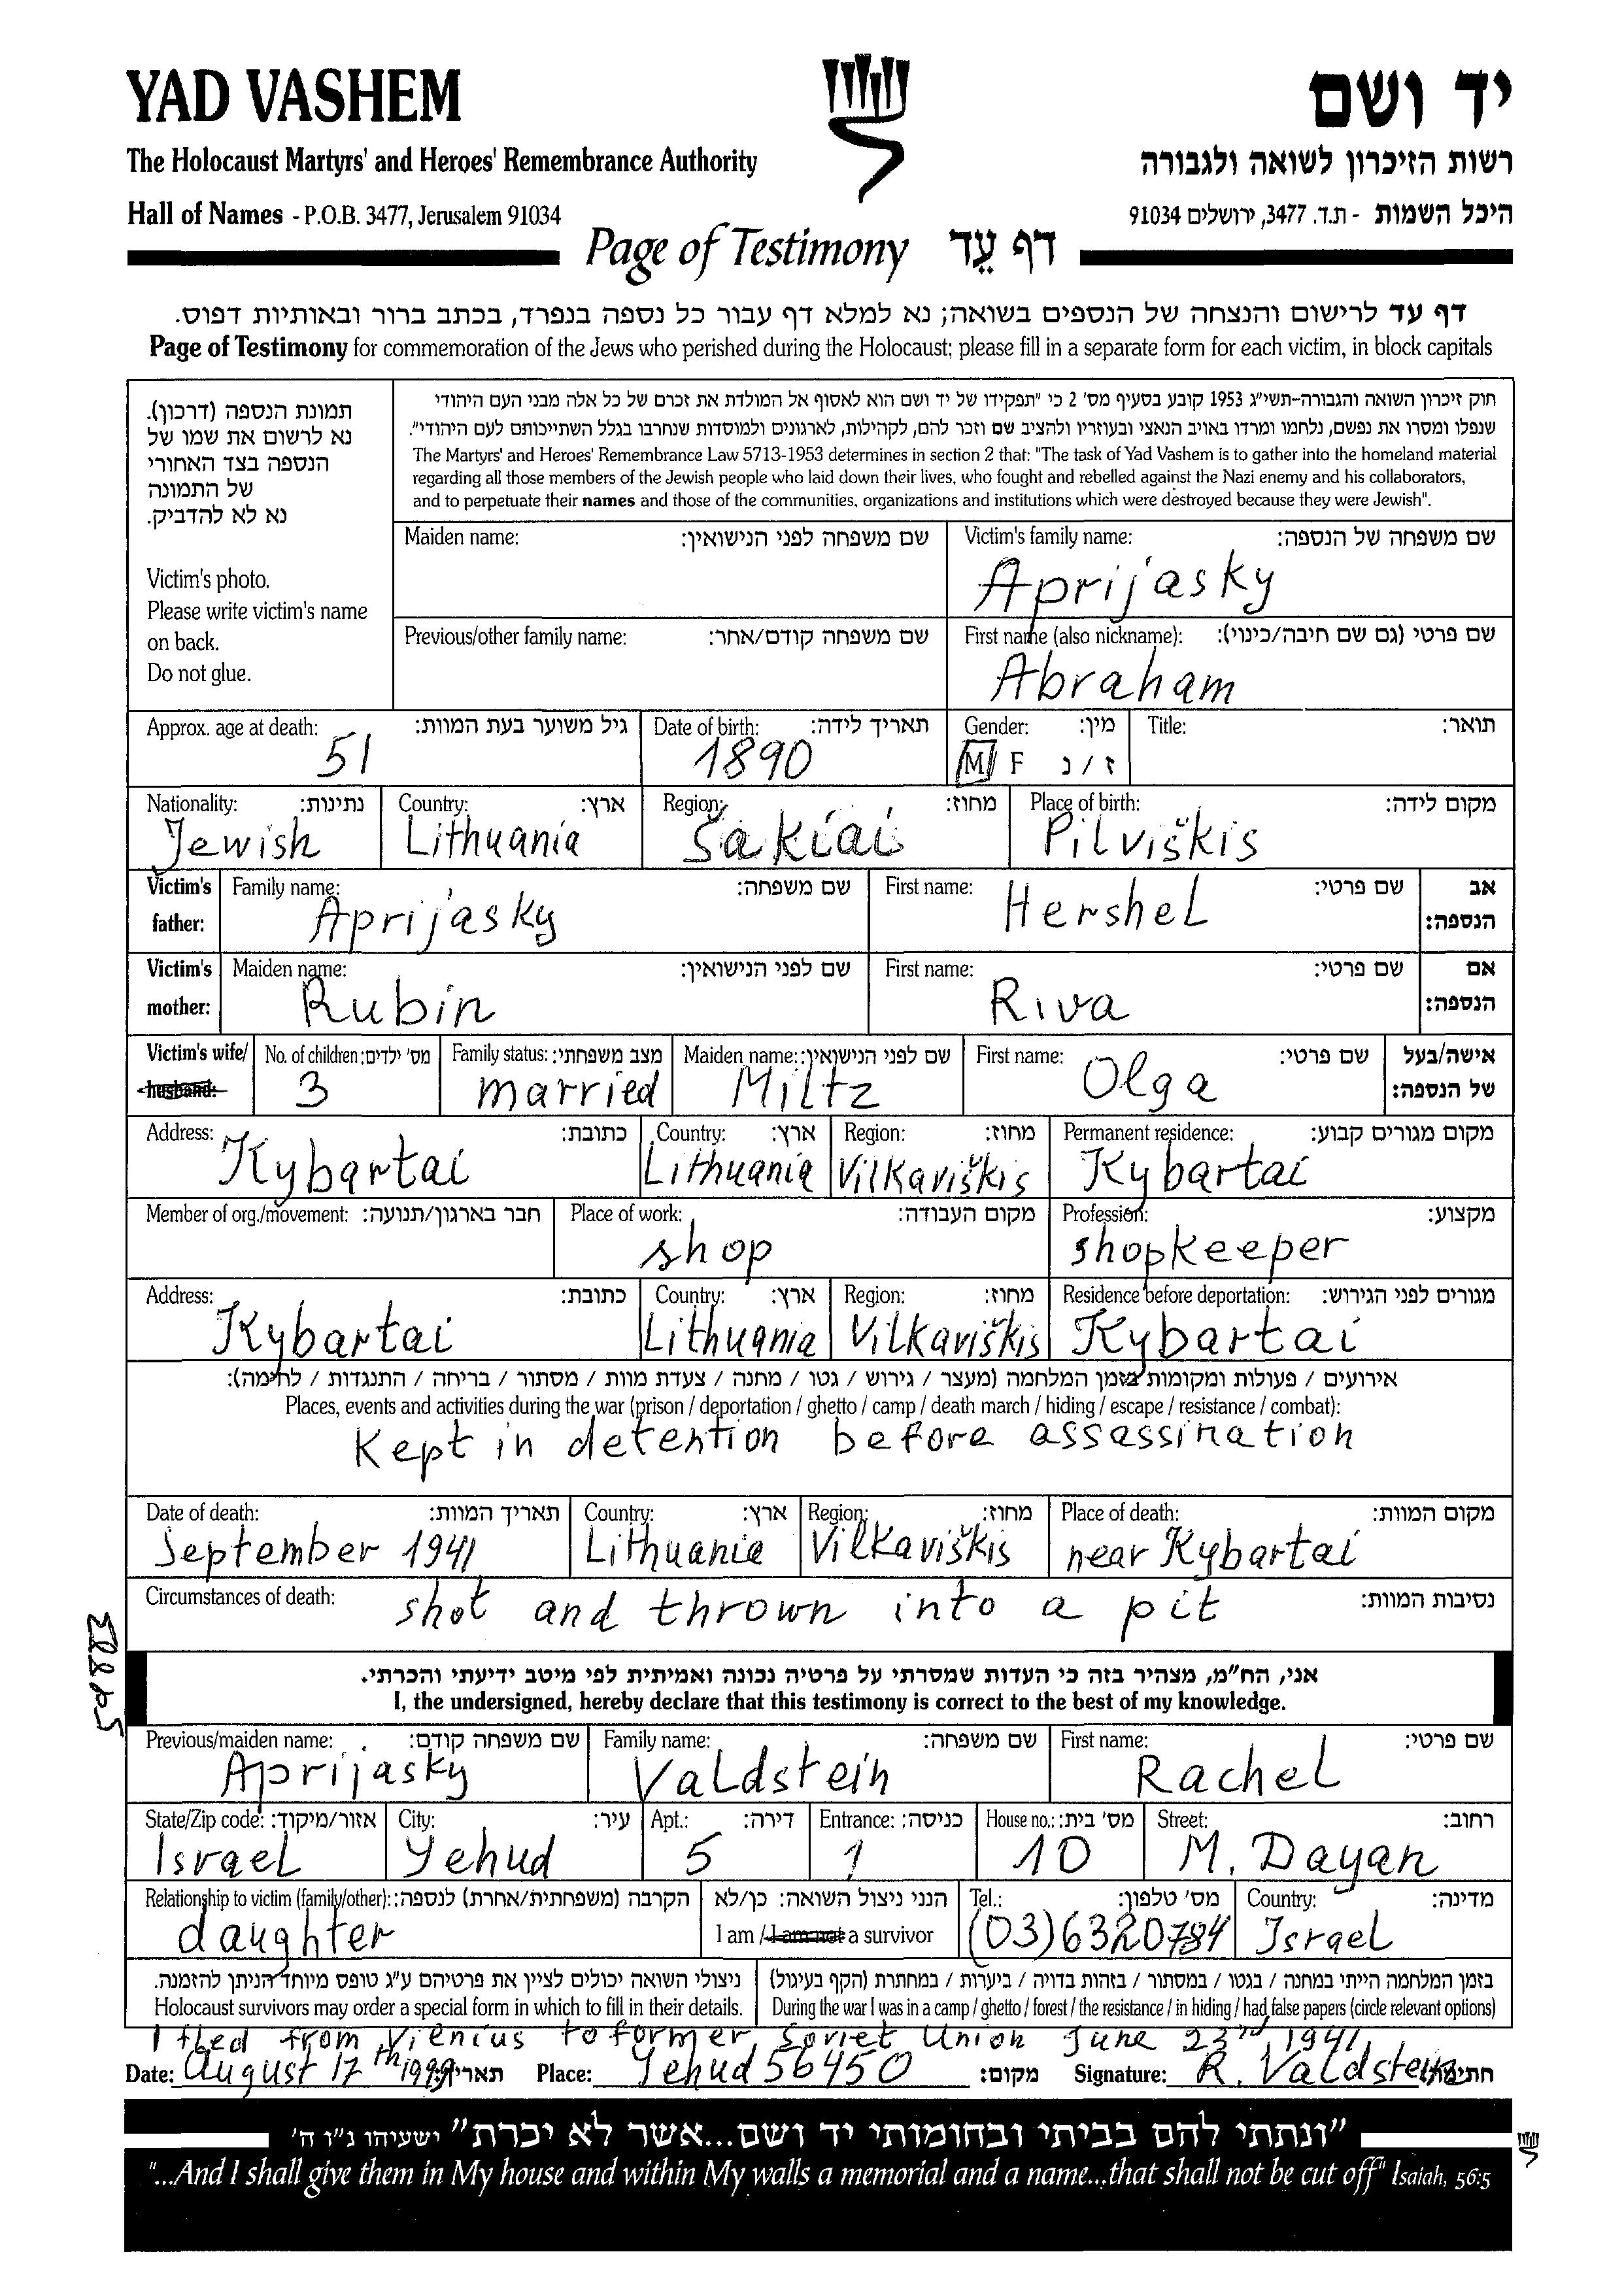 YAD VASHEM
יד ושם
The Holocaust Martyrs' and Heroes' Remembrance Authority
רשות הזיכרון לשואה ולגבורה
Hall of Names - P.O.B. 3477, Jerusalem 91034
היכל השמות - ת.ד. 3477, ירושלים 91034
Page of Testimony דף עֵד
דף עד לרישום והנצחה של הנספים בשואה; נא למלא דף עבור כל נספה בנפרד, בכתב ברור ובאותיות דפוס.
Page of Testimony for commemoration of the Jews who perished during the Holocaust; please fill in a separate form for each victim, in block capitals
תמונת הנספה (דרכון).
נא לרשום את שמו של
הנספה בצד האחורי
של התמונה
נא לא להדביק.
Victim's photo.
Please write victim's name
on back.
Do not glue.
חוק זיכרון השואה והגבורה-תשי"ג 1953 קובע בסעיף מס' 2 כי "תפקידו של יד ושם הוא לאסוף אל המולדת את זכרם של כל אלה מבני העם היהודי
שנפלו ומסרו את נפשם, נלחמו ומרדו באויב הנאצי ובעוזריו ולהציב שם וזכר להם, לקהילות, לארגונים ולמוסדות שנחרבו בגלל השתייכותם לעם היהודי".
The Martyrs' and Heroes' Remembrance Law 5713-1953 determines in section 2 that: "The task of Yad Vashem is to gather into the homeland material
regarding all those members of the Jewish people who laid down their lives, who fought and rebelled against the Nazi enemy and his collaborators,
and to perpetuate their names and those of the communities, organizations and institutions which were destroyed because they were Jewish".
Maiden name: שם משפחה לפני הנישואין:
Victim's family name: שם משפחה של הנספה:
Aprijasky
Previous/other family name: שם משפחה קודם/אחר:
First name (also nickname): שם פרטי (גם שם חיבה/כינוי):
Abraham
Approx. age at death: גיל משוער בעת המוות: Date of birth: תאריך לידה: Gender: מין: Title: תואר:
51 1890 M F ז / נ
Nationality: נתינות: Country: ארץ: Region: מחוז: Place of birth: מקום לידה:
Jewish Lithuania Šakiai Pilviškis
Victim's father: Family name: שם משפחה: First name: שם פרטי: אב הנספה:
Aprijasky Hershel
Victim's mother: Maiden name: שם לפני הנישואין: First name: שם פרטי: אם הנספה:
Rubin Riva
Victim's wife/ husband: No. of children: מס' ילדים: Family status: מצב משפחתי: Maiden name: שם לפני הנישואין: First name: שם פרטי: אישה/בעל של הנספה:
3 married Miltz Olga
Address: כתובת: Country: ארץ: Region: מחוז: Permanent residence: מקום מגורים קבוע:
Kybartai Lithuania Vilkaviškis Kybartai
Member of org./movement: חבר בארגון/תנועה: Place of work: מקום העבודה: Profession: מקצוע:
shop shopkeeper
Address: כתובת: Country: ארץ: Region: מחוז: Residence before deportation: מגורים לפני הגירוש:
Kybartai Lithuania Vilkaviškis Kybartai
אירועים / פעולות ומקומות בזמן המלחמה (מעצר / גירוש / גטו / מחנה / צעדת מוות / מסתור / בריחה / התנגדות / לחימה):
Places, events and activities during the war (prison / deportation / ghetto / camp / death march / hiding / escape / resistance / combat):
Kept in detention before assassination
Date of death: תאריך המוות: Country: ארץ: Region: מחוז: Place of death: מקום המוות:
September 1941 Lithuania Vilkaviškis near Kybartai
Circumstances of death: נסיבות המוות:
shot and thrown into a pit
אני, הח"מ, מצהיר בזה כי העדות שמסרתי על פרטיה נכונה ואמיתית לפי מיטב ידיעתי והכרתי.
I, the undersigned, hereby declare that this testimony is correct to the best of my knowledge.
Previous/maiden name: שם משפחה קודם: Family name: שם משפחה: First name: שם פרטי:
Aprijasky Valdstein Rachel
State/Zip code: אזור/מיקוד: City: עיר: Apt.: דירה: Entrance: כניסה: House no.: מס' בית: Street: רחוב:
Israel Yehud 5 1 10 M. Dayan
Relationship to victim (family/other): הקרבה (משפחתית/אחרת) לנספה: הנני ניצול השואה: כן/לא Tel.: מס' טלפון: Country: מדינה:
daughter I am / I am not a survivor (03)6320784 Israel
ניצולי השואה יכולים לציין את פרטיהם ע"ג טופס מיוחד הניתן להזמנה. בזמן המלחמה הייתי במחנה / בגטו / במסתור / בזהות בדויה / ביערות / במחתרת (הקף בעיגול)
Holocaust survivors may order a special form in which to fill in their details. During the war I was in a camp / ghetto / forest / the resistance / in hiding / had false papers (circle relevant options)
I fled from Vilnius to former Soviet Union June 23rd, 1941
Date: August 17th 1999 תאריך: Place: Yehud 56450 מקום: Signature: R. Valdstein חתימה:
"ונתתי להם בביתי ובחומותי יד ושם...אשר לא יכרת" ישעיהו נ"ו ה'
"...And I shall give them in My house and within My walls a memorial and a name...that shall not be cut off" Isaiah, 56:5